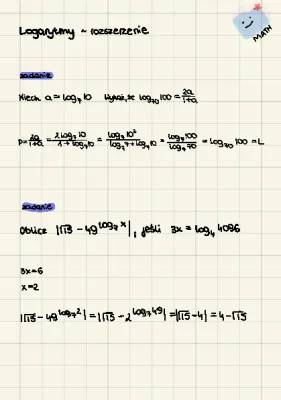 Logarytmy - rozszerzenie
MATH
zadanie
Niech a = log₇10 Wykaż, że log₇₀100 = 2a/(1+a)
P = 2a/(1+a) = 2log₇10/(1+log₇10) = log₇10²/(log₇7+log₇10) = log₇100/log₇70 = log₇₀100 = L
zadanie
Oblicz |√15 - 49^(log₇x)|, jeśli 3x = log₄4096
3x=6
x=2
|√15 - 49^(log₇2)| = |√15 - 2^(log₇49)| = |√15 - 4| = 4-√15